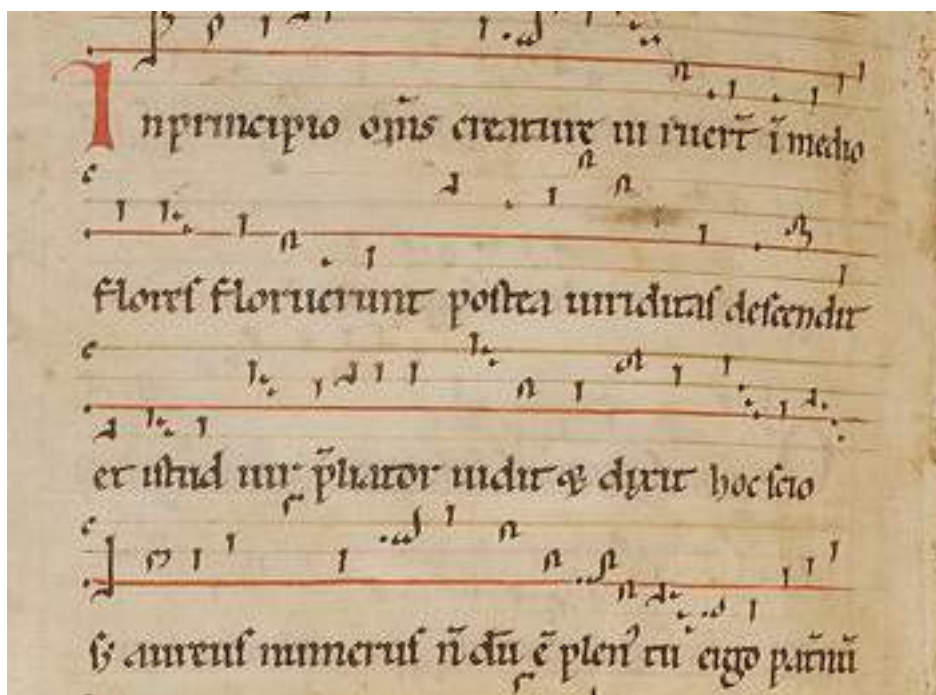 In principio om̅s creature uiruer̅t i̅ medio
flores floruerunt postea uiriditas descendit
et istud uir p̅liator uidit & dixit hoc scio
sꝫ aureus numerus n̅dū e̅ plen᾽ tu ergo pat̅nu̅